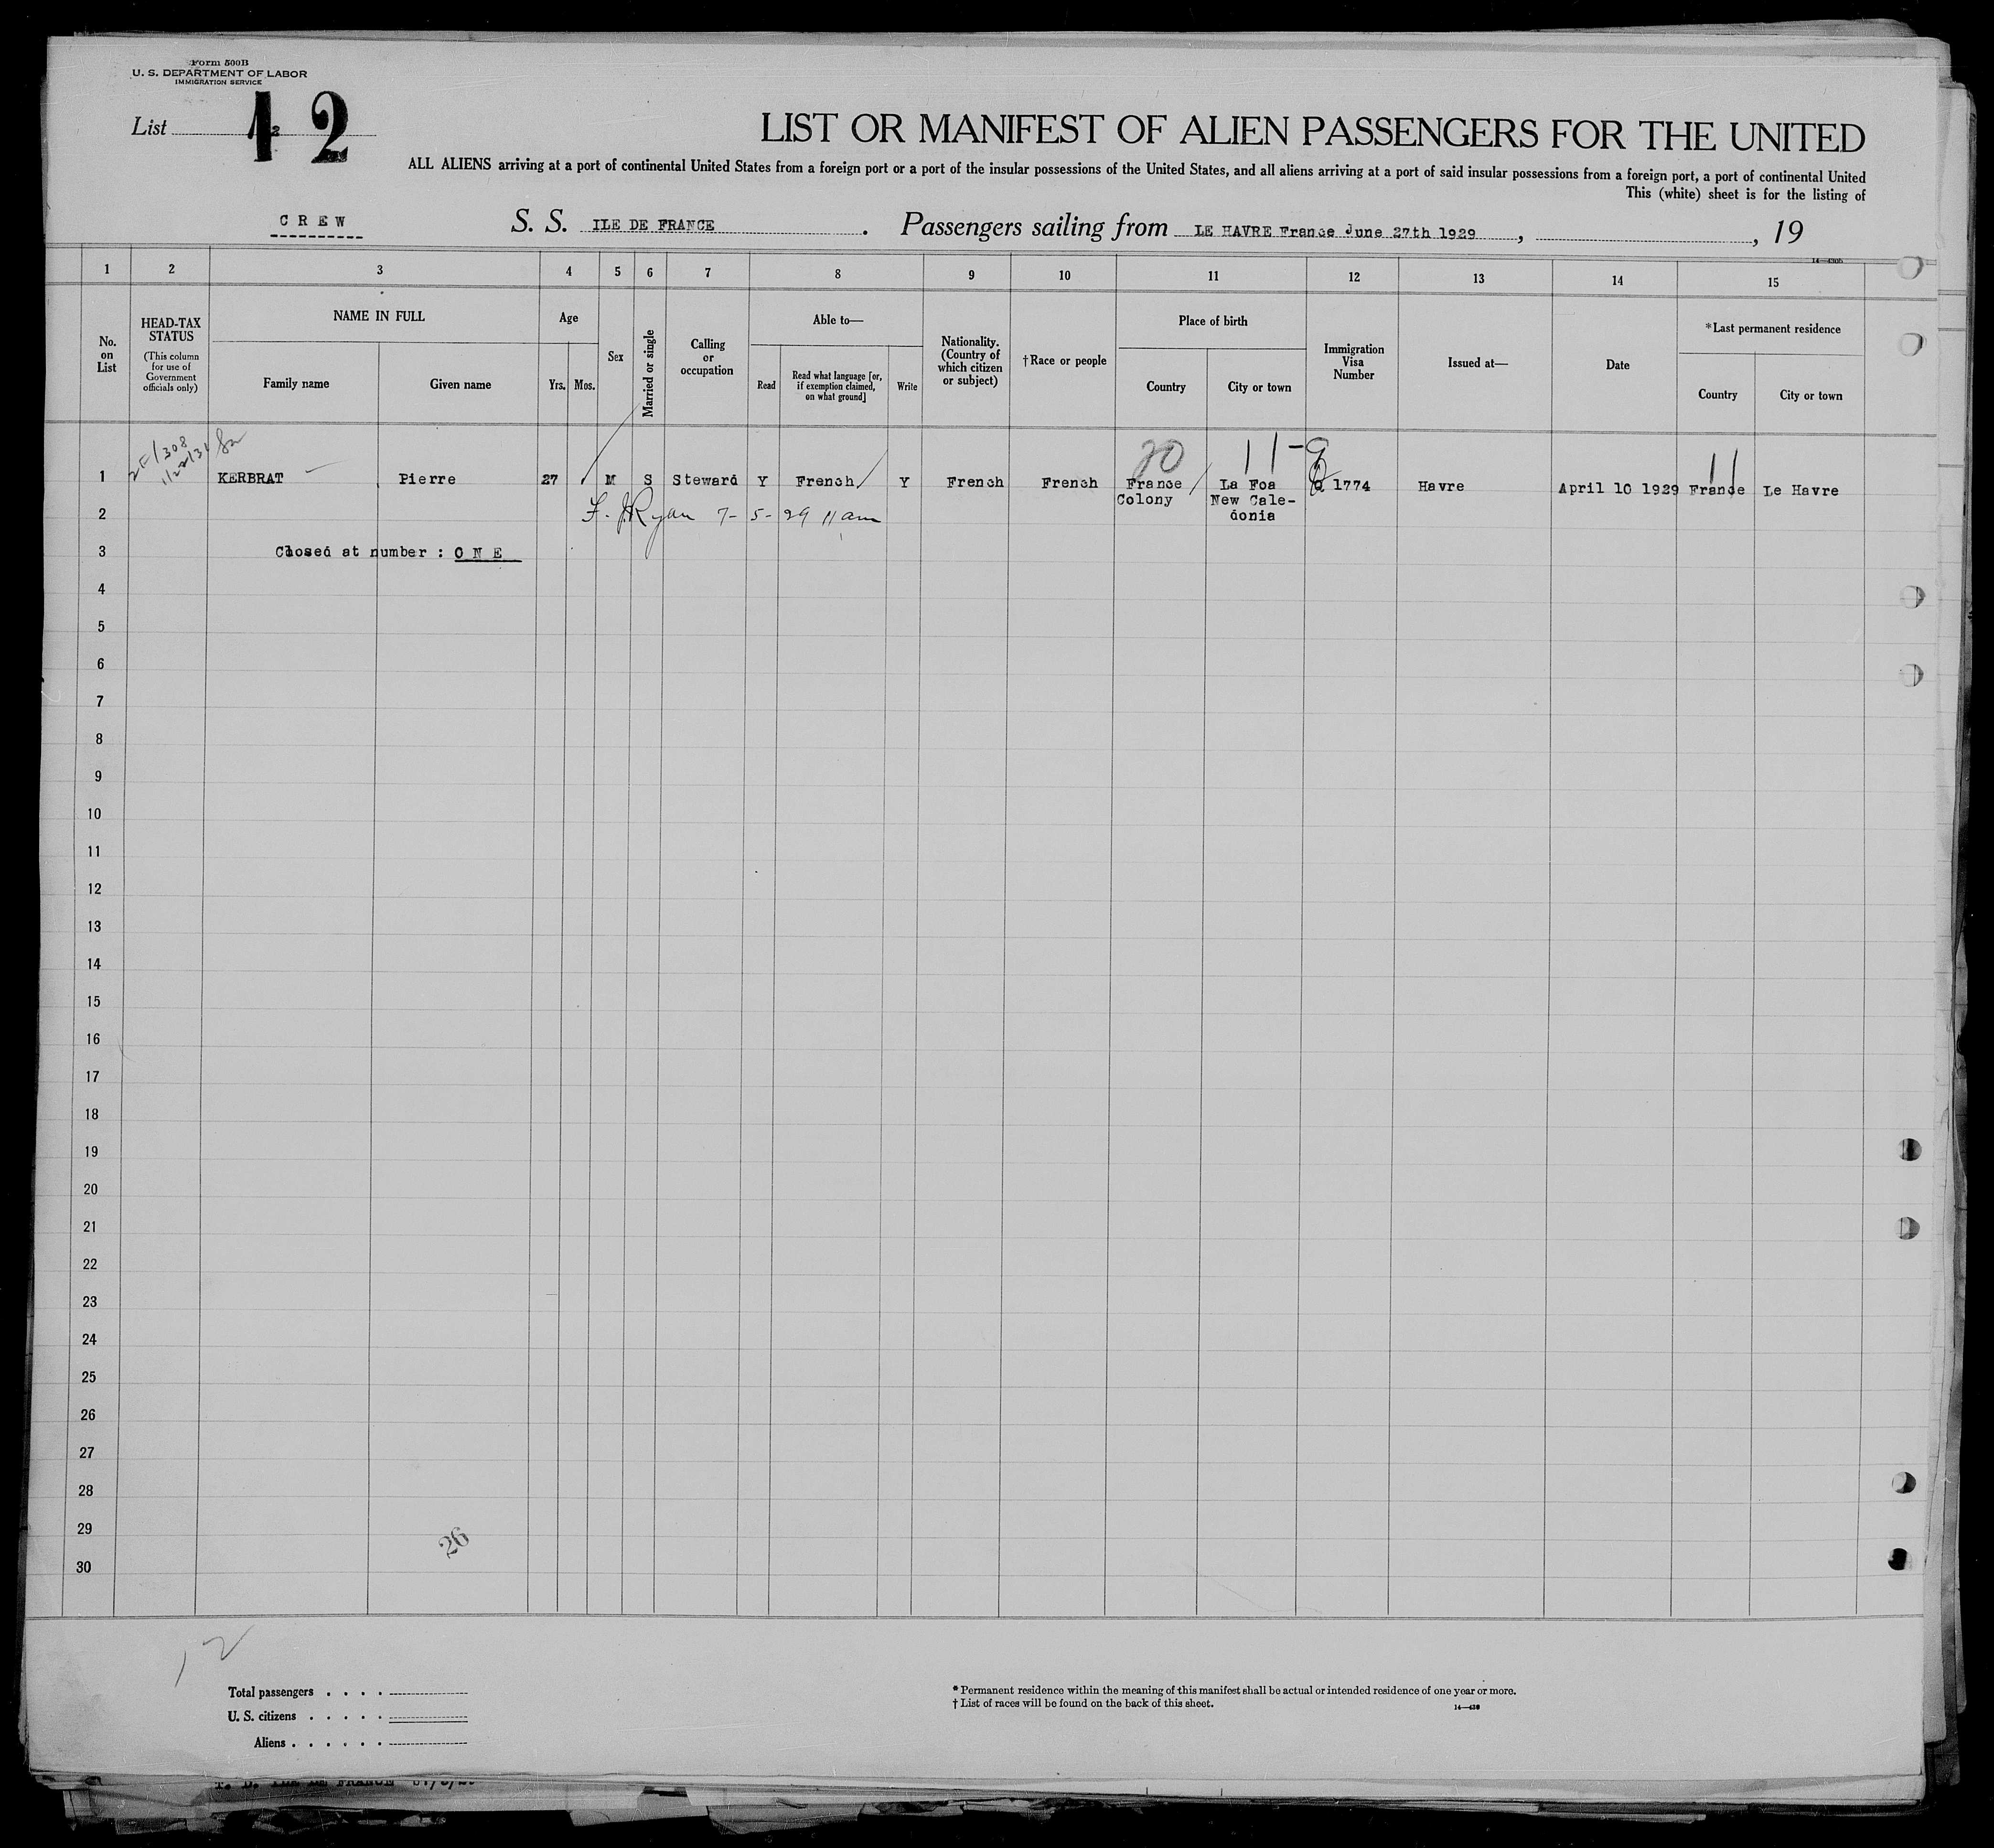 Form 500B
U. S. DEPARTMENT OF LABOR
IMMIGRATION SERVICE
List 12
LIST OR MANIFEST OF ALIEN PASSENGERS FOR THE UNITED
ALL ALIENS arriving at a port of continental United States from a foreign port or a port of the insular possessions of the United States, and all aliens arriving at a port of said insular possessions from a foreign port, a port of continental United
This (white) sheet is for the listing of
CREW S. S. ILE DE FRANCE . Passengers sailing from LE HAVRE France June 27th 1929 , , 19
1 2 3 4 5 6 7 8 9 10 11 12 13 14 15
No. on List
HEAD-TAX STATUS
(This column for use of Government officials only)
NAME IN FULL
Family name
Given name
Age
Yrs.
Mos.
Sex
Married or single
Calling or occupation
Able to—
Read
Read what language [or, if exemption claimed, on what ground]
Write
Nationality. (Country of which citizen or subject)
†Race or people
Place of birth
Country
City or town
Immigration Visa Number
Issued at—
Date
*Last permanent residence
Country
City or town
2F/308
11/22/31
20 11-9 11
1 KERBRAT Pierre 27 M S Steward Y French Y French French France La Foa Q 1774 Havre April 10 1929 France Le Havre
Colony New Cale-
donia
2 F. J. Ryan 7-5-29 11 am
3 Closed at number : ONE
4
5
6
7
8
9
10
11
12
13
14
15
16
17
18
19
20
21
22
23
24
25
26
27
28
29
26
30
12
Total passengers . . . .
U. S. citizens . . . . .
Aliens . . . . . .
* Permanent residence within the meaning of this manifest shall be actual or intended residence of one year or more.
† List of races will be found on the back of this sheet.